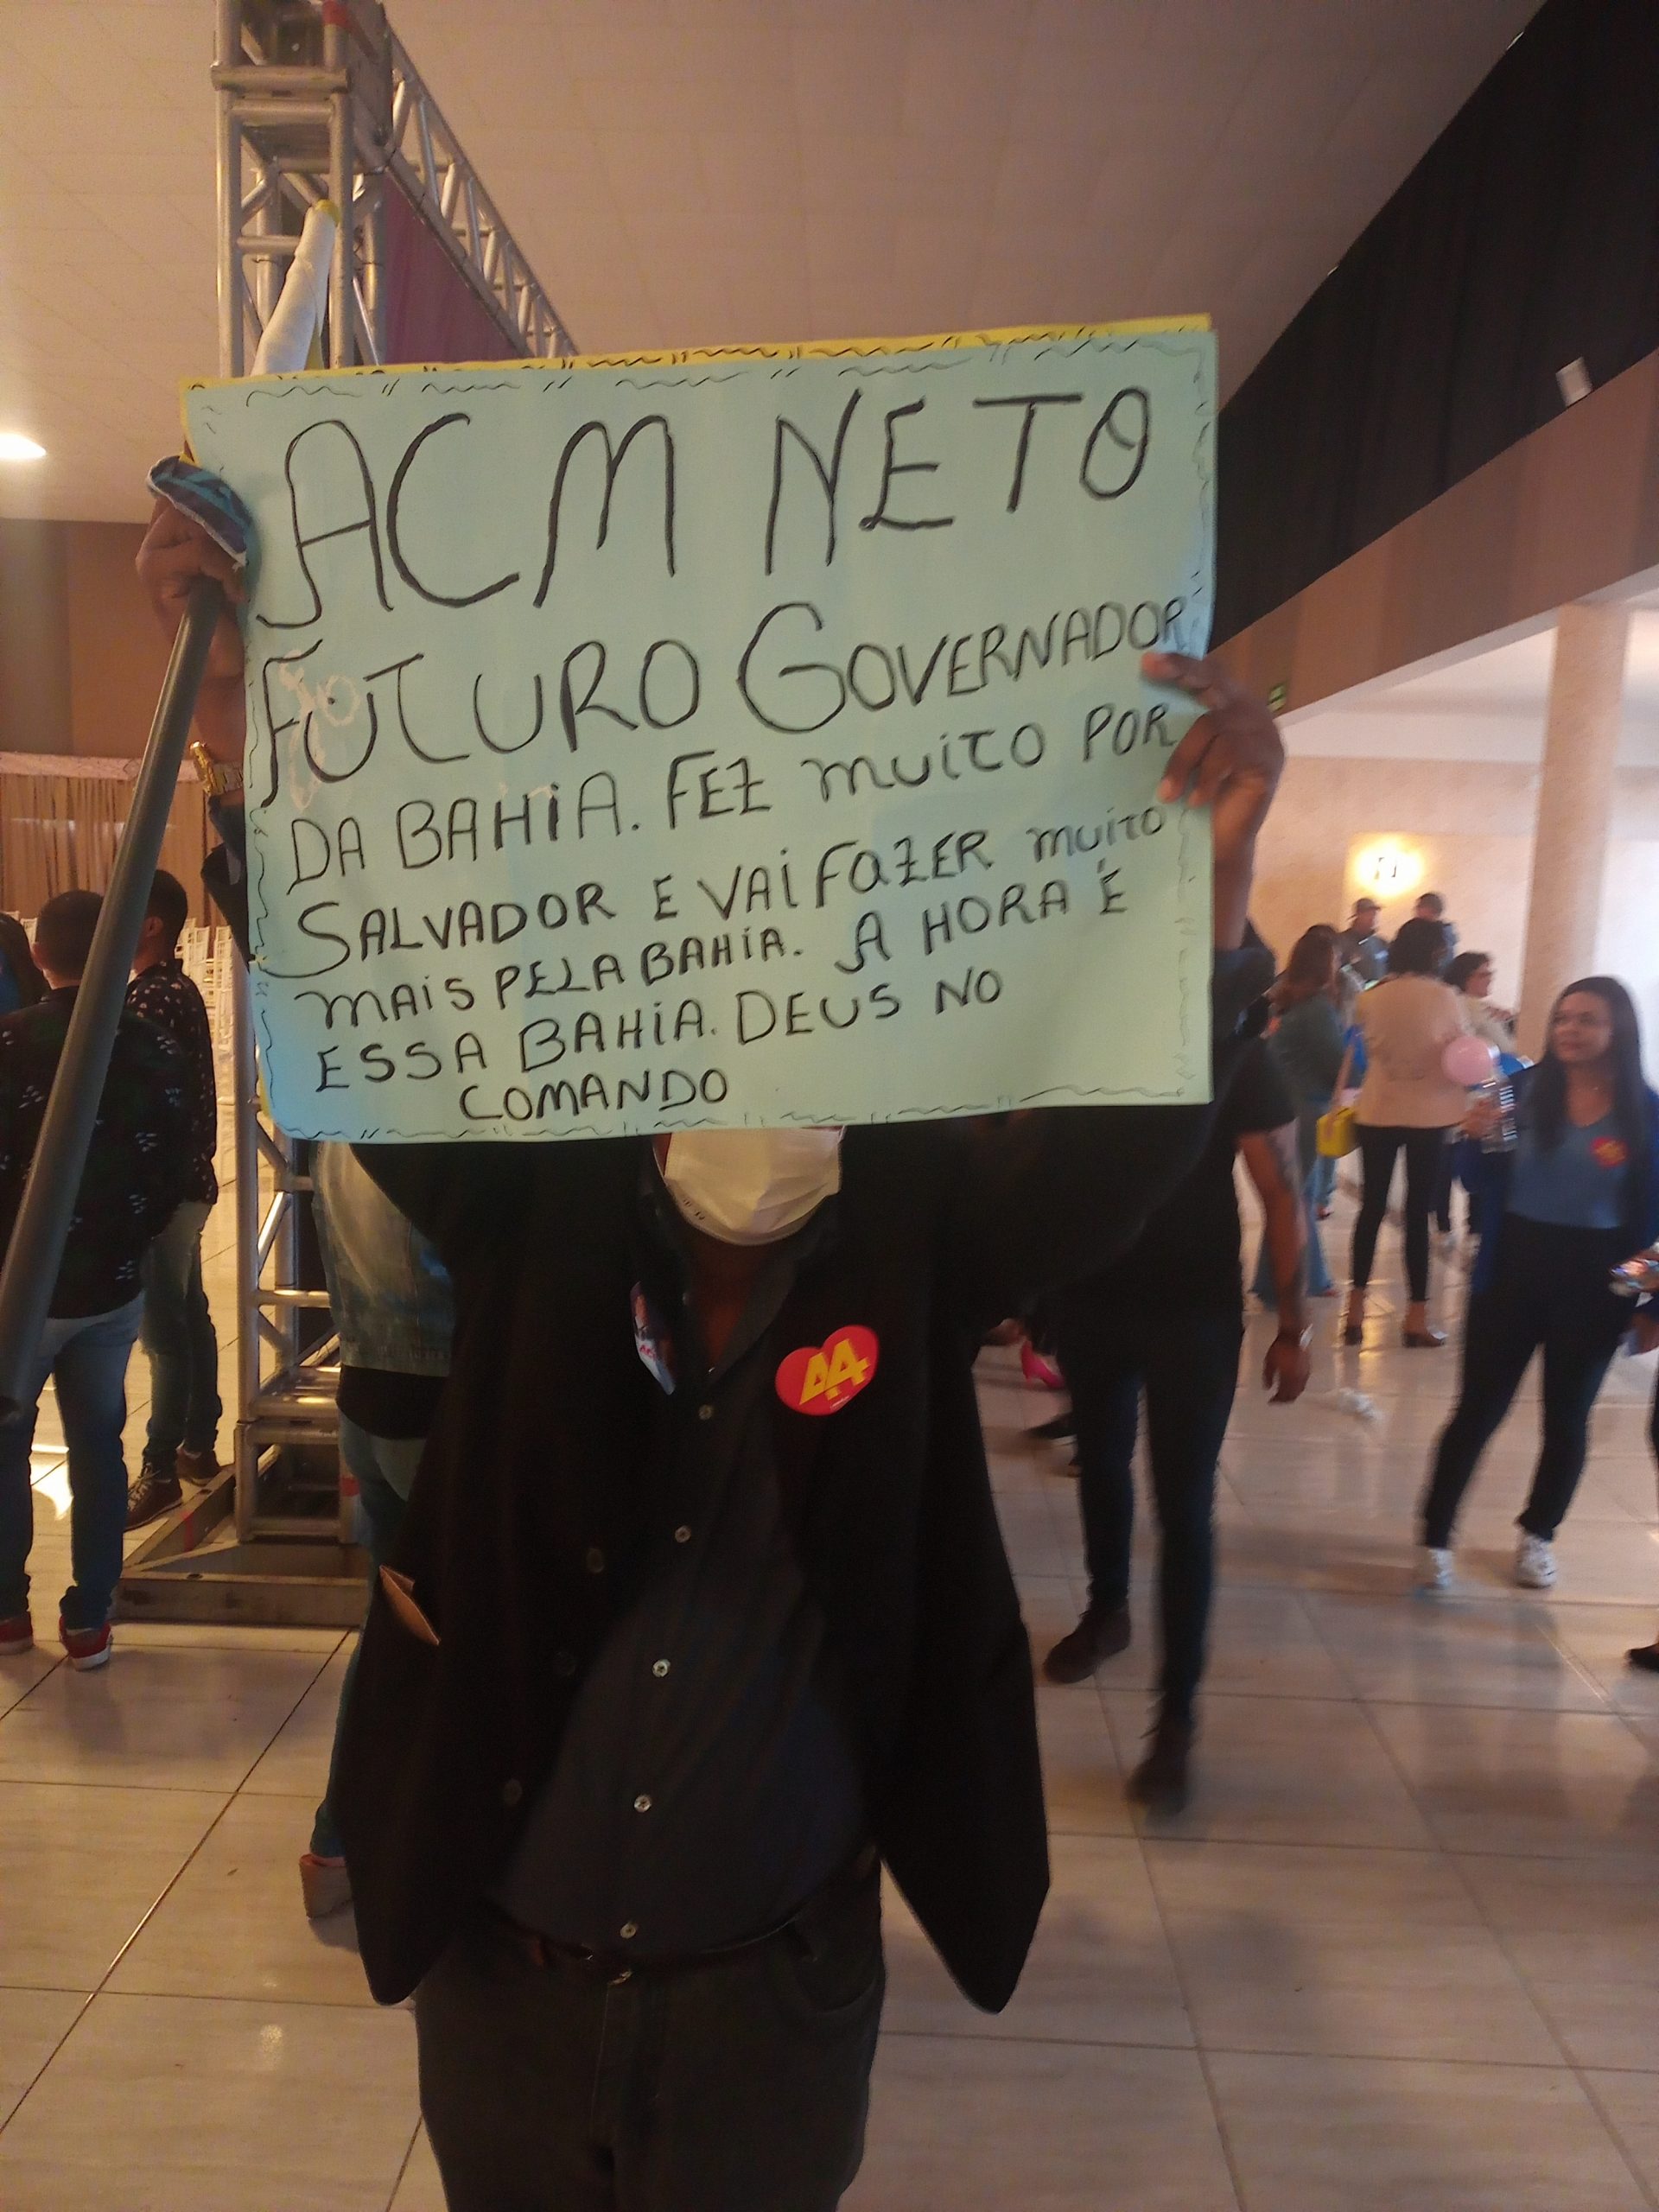 ACM NETO
FUTURO GOVERNADOR
DA BAHIA. FEZ muito POR
SALVADOR E VAI FAZER muito
mAIS PELA BAHIA. A HORA É
ESSA BAHIA. DEUS NO
COMANDO
44